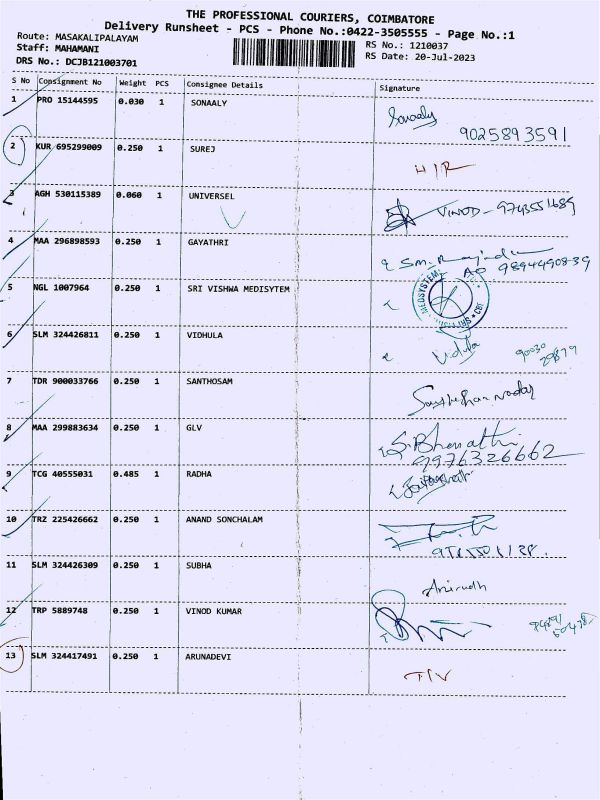 THE PROFESSIONAL COURIERS, COIMBATORE
Delivery Runsheet - PCS - Phone No.:0422-3505555 - Page No.:1
Route: MASAKALIPALAYAM RS No.: 1210037
Staff: MAHAMANI RS Date: 20-Jul-2023
DRS No.: DCJB121003701
S No Consignment No Weight PCS Consignee Details Signature
1 PRO 15144595 0.030 1 SONAALY Sonaaly
9025893591
2 KUR 695299009 0.250 1 SUREJ
3 AGH 530115389 0.060 1 UNIVERSEL VINOD - 9743551689
4 MAA 296898593 0.250 1 GAYATHRI
9894490839
5 NGL 1007964 0.250 1 SRI VISHWA MEDISYTEM
6 SLM 324426811 0.250 1 VIDHULA Vidula
7 TDR 900033766 0.250 1 SANTHOSAM
8 MAA 299883634 0.250 1 GLV S. Bharathi
9976326662
9 TCG 40555031 0.485 1 RADHA
10 TRZ 225426662 0.250 1 ANAND SONCHALAM
11 SLM 324426309 0.250 1 SUBHA Anirudh
12 TRP 5889748 0.250 1 VINOD KUMAR
13 SLM 324417491 0.250 1 ARUNADEVI